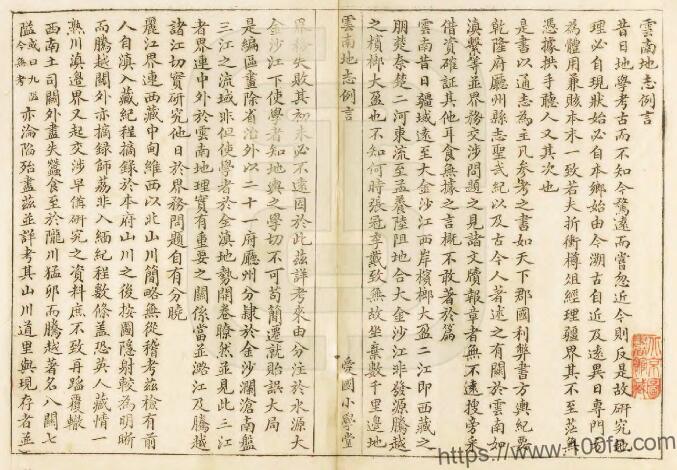 雲南地志例言
昔日地學考古而不知今驚遠而嘗忽近今則反是故研究地
理必自現狀始必自本鄉始由今溯古自近及遠異日專門
為體用兼賅本末一致若夫折衝樽俎經理疆界其不至茫無
憑據拱手聽人又其次也
是書以通志為主凡參考之書如天下郡國利弊書方輿紀要
乾隆府廳州縣志聖武紀以及古今人著述之有關於雲南如
滇繫等並界務交涉問題之見諸文牘報章者無不遠搜旁采
借資確証其他耳食無據之言概不敢著於篇
雲南昔日疆域遠至大金沙江西岸檳榔大盈二江即西藏之
朋楚奈楚二河東流至孟養陸阻地合大金沙江非發源騰越
之檳榔大盈也不知何時張冠李戴致無故坐棄數千里邊地
雲南地志例言
愛國小學堂
界務失敗其初未必不遠因於此茲詳考來由分注於水源大
金沙江下使學者知地輿之學切不可苟簡遷就貽誤大局
是編區畫除省治外以二十一府廳州分隸於金沙瀾滄南盤
三江之流域非但使學者於全滇地勢開卷瞭然並見此三江
者界連中外於雲南地理實有重要之關係當並潞江及騰越
諸江切實研究他日於界務問題自有分曉
麗江界連西藏中甸維西以北山川簡略無從稽考茲檢有前
人自滇入藏紀程摘錄於本府山川之後按圖隱射較為明晰
而騰越關外亦摘錄師荔扉入緬紀程數條蓋恐英人藏情一
熟川滇邊界又起交涉早備研究之資料庶不致再蹈覆轍
西南土司關外盡失蠶食至於隴川猛卯而騰越著名八關七
隘或曰九隘今無考亦淪陷殆盡茲並詳考其山川道里與現存者並